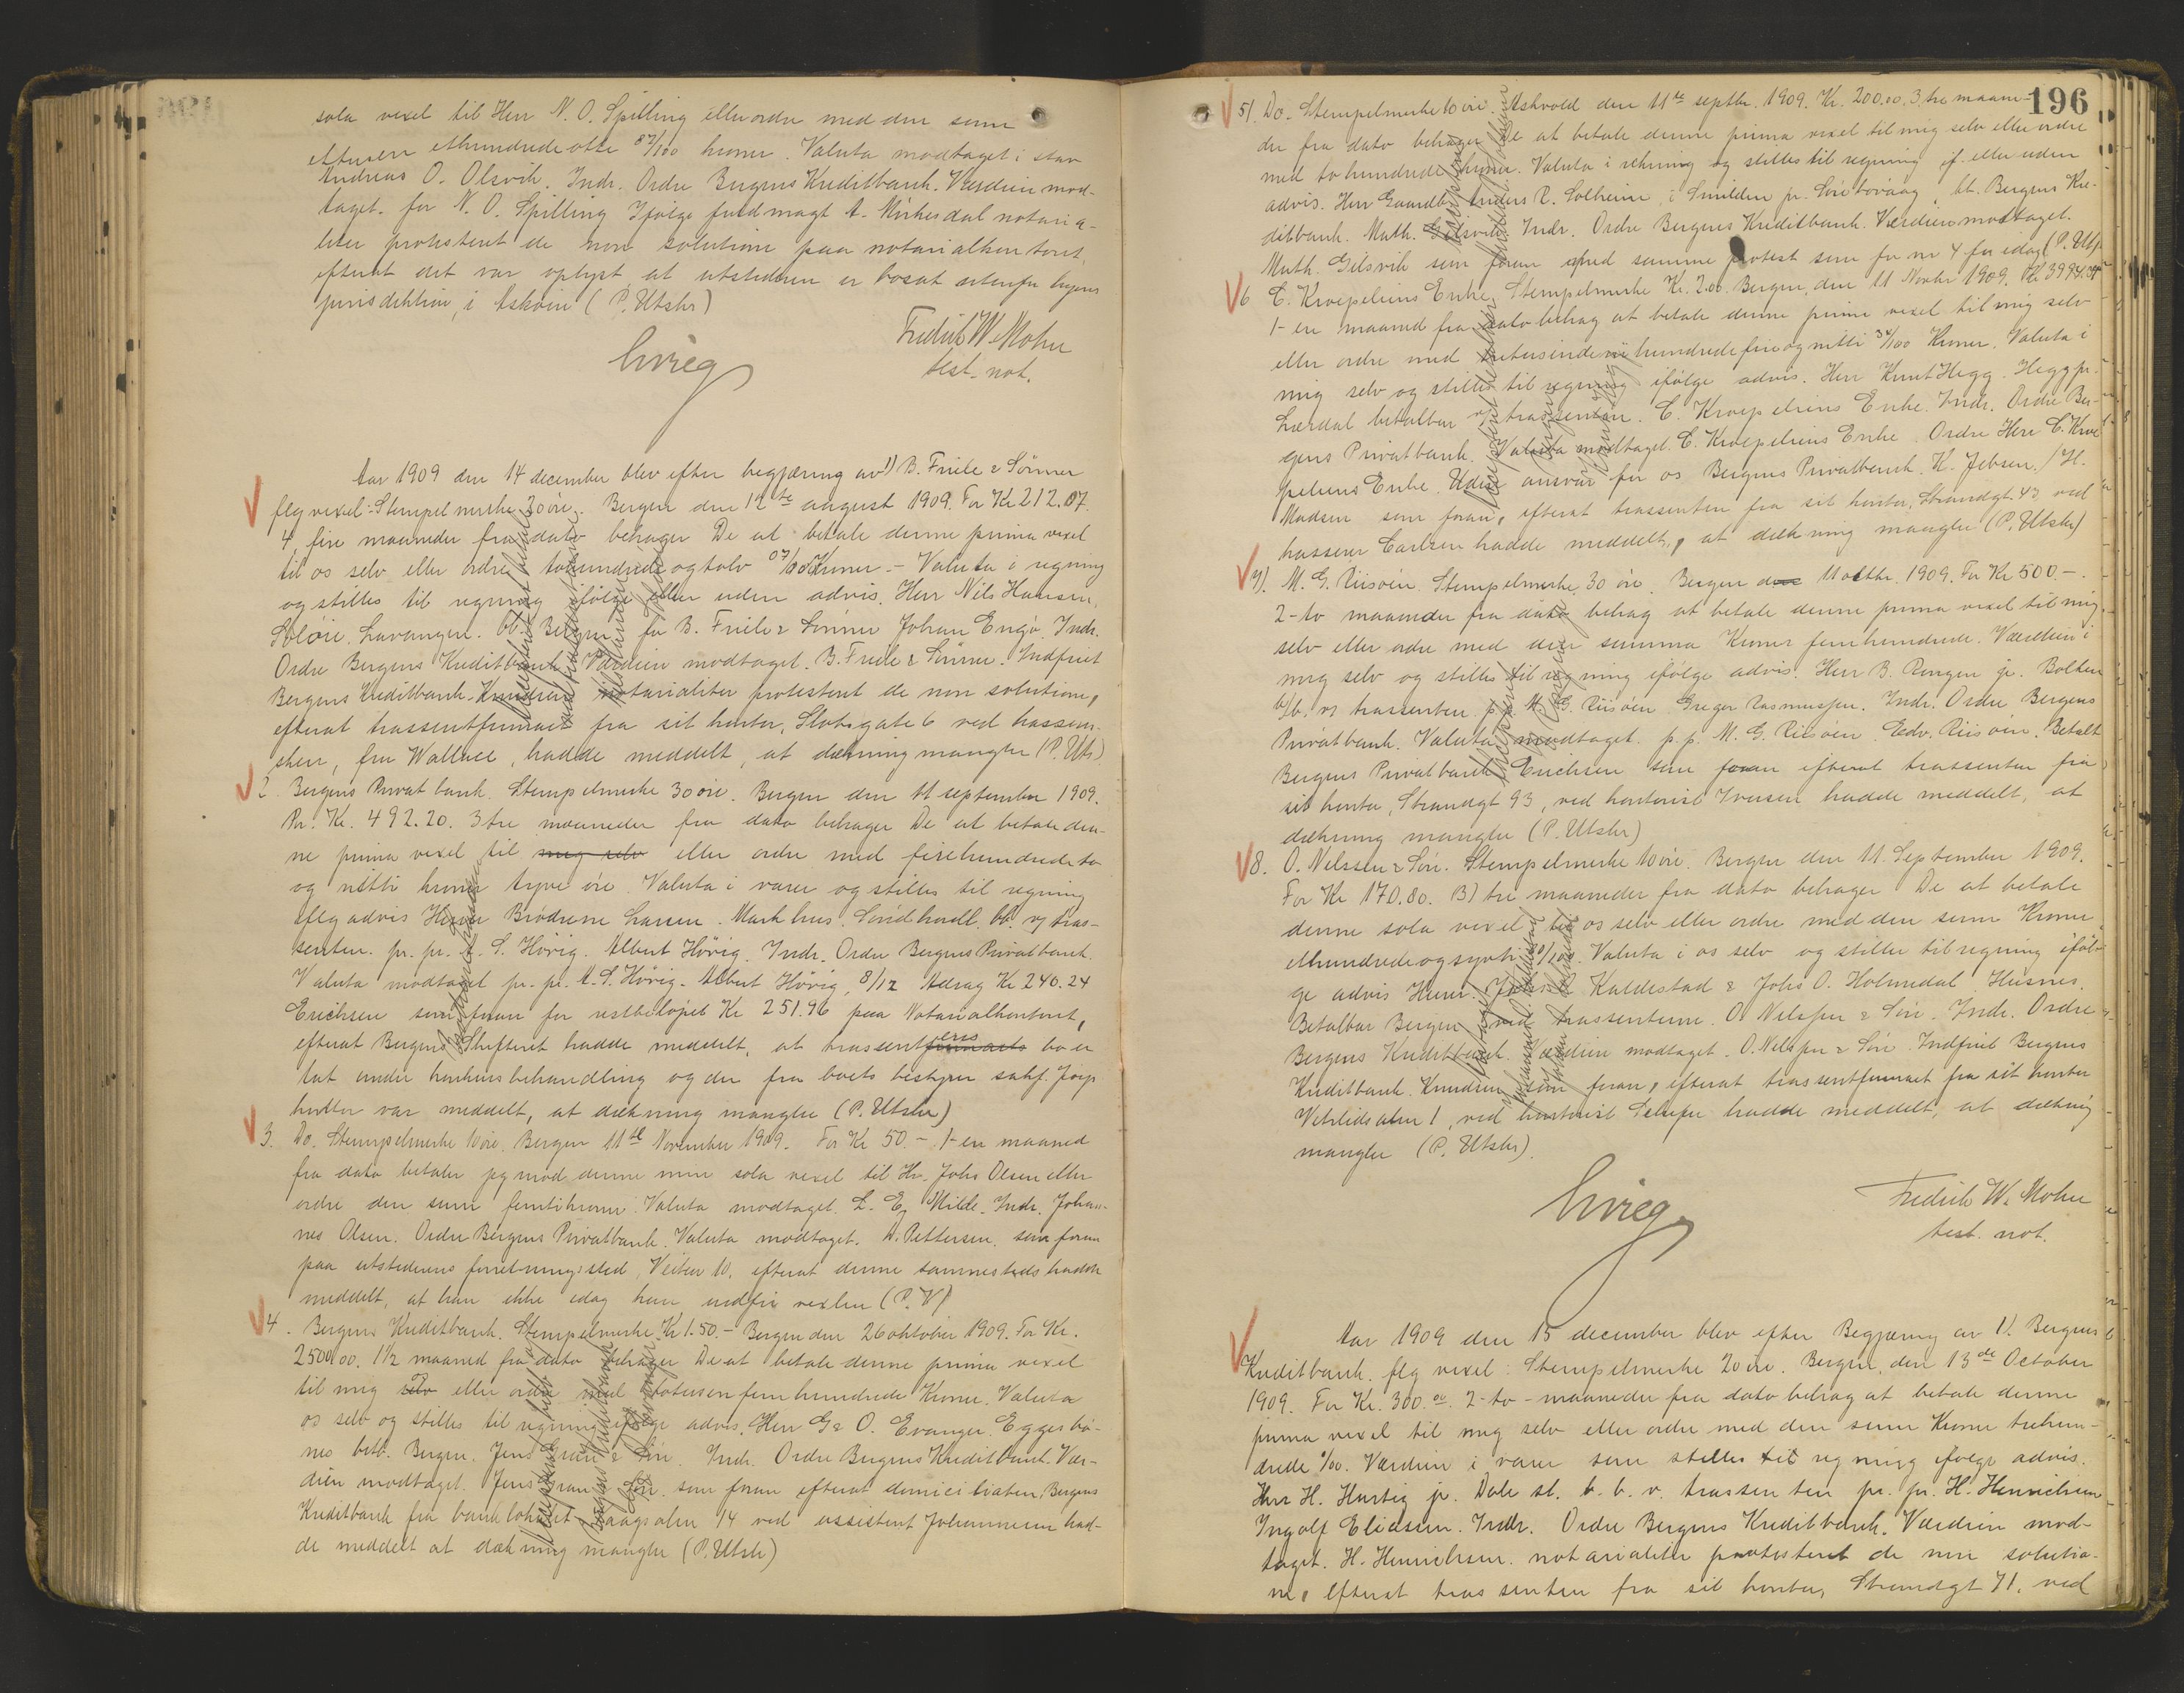 sola vexel til Herr N. O. Spilling eller ordre med den sum
ethundredeotte 87/100 kroner. Valuta modtaget i stav
Andreas O. Olsvik. Indr. Ordre Bergens Kreditbank. Værdien mod-
taget. for N. O. Spilling Ifølge fuldmagt A. Mirkesdal notaria-
liter protesteret de non solutione paa notarialkontoret,
efterat det var oplyst at utstederen er bosat utenfor byens
jurisdiktion, i Askøin (P. Utstr)
Fredrik W. Mohn
test. not.
Aar 1909 den 14 december blev efter begjæring av 1) B. Friele & Sønner
flg vexel: Stempelmerke 30 øre. Bergen den 12te august 1909. For Kr 212.07.
4, fire maaneder fra dato behager De at betale denne prima vexel
til os selv eller ordre tohundrede og tolv 07/100 Kroner. - Valuta i regning
og stilles til regning ifølge eller uden advis. Herr Nils Hansen,
Soløie. Lavangen. bt. Bergen for B. Friele & Sønner Johan Engø. Indr.
Ordre Bergens Kreditbank. Værdien modtaget. B. Friele & Sønner. Indfriet
Bergens Kreditbank. Knudsen notarialiter protesteret de non solutione,
efterat trassentfirmaet fra sit kontor, Slotsgate 6 ved kasserer-
sken, fru Wallace, hadde meddelt, at dækning mangler (P. Uts)
2. Bergens Privatbank. Stempelmerke 30 øre. Bergen den 11 september 1909.
Pr. Kr. 492.20. 3 tre maaneder fra dato behager De at betale den-
ne prima vexel til mig selv eller ordre med firehundredeto
og nitti kroner tyve øre. Valuta i varer og stilles til regning
iflg advis Herrer Brødrene Larsen. Markhus. Søndhordl. bt. v/ tras-
senten. pr. pr. A. S. Høvig. Albert Høvig. Indr. Ordre Bergens Privatbank.
Valuta modtaget pr. pr. A. S. Høvig. Albert Høvig, 8/12 Adrag Kr 240.24
Erichsen som foran for restbeløpet Kr 251.96 paa Notarialkontoret,
efterat Bergens Skifteret hadde meddelt, at trassentfirmaets eres bo er
tat under konkursbehandling og der fra boets bestyrer sakf.
var meddelt, at dækning mangler (P. Utstr)
3. Do. Stempelmerke 10 øre. Bergen 11te November 1909. For Kr 50. - 1 - en maaned
fra dato betaler jeg mod denne min sola vexel til Hr. Johs Olsen eller
ordre den sum femtikroner. Valuta modtaget. L. E. Milde. Indr. Johan-
nes Olsen. Ordre Bergens Privatbank. Valuta modtaget. A. Pettersen. som foran
paa utstederens forretningssted, Veiten 10. efterat denne sammesteds hadde
meddelt, at han ikke idag kan indfri vexlen (P. V)
4. Bergens Kreditbank. Stempelmerke Kr 1.50. - Bergen den 26 oktober 1909. For Kr.
2500.00. 1 1/2 maaned fra dato behager De at betale denne prima vexel
til mig selv eller ordre med totusen femhundrede Kroner. Valuta
os selv og stilles til regning ifølge advis. Herr G & O. Evanger. Eggesbø-
nes betb. Bergen. Jens Gran & Søn. Indr. Ordre Bergens Kreditbank. Vær-
dien modtaget. Jens Gran & Søn. som foran efterat domiciliaten, Bergens
Kreditbank fra banklokalet Vaagsalm 14 ved assistent Johannesen had-
de meddelt at dækning mangler (P. Utstr)
196
5). Do. Stempelmerke 10 øre. Askvold den 11te septbr. 1909. Kr. 200.00. 3, tre maane-
der fra dato behager De at betale denne prima vexel til mig selv eller ordre
med to hundrede kroner. Valuta i rekning og stilles til regning if. eller uden
advis. Herr Gaardbr. Anders R. Solheim, i Smilden pr. Sørebøvaag bt. Bergens Kre-
ditbank. Math. Gilsvik. Indr. Ordre Bergens Kreditbank. Værdien modtaget.
Math. Gilsvik som foran med samme protest som for nr 4 for idag (P. Uts)
6 C. Kroepeliens Enke, Stempelmerke Kr. 2.00. Bergen, den 11 Novbr 1909. Kr 3994.34
1 - en maaned fra dato behag at betale denne prima vexel til mig selv
eller ordre med tretusindenihundredefireognitti 34/100 Kroner. Valuta i
mig selv og stilles til regning ifølge advis. Herr Knut Hegg. Hegg pr.
Lærdal betalbar v/ trassenten. C. Kroepeliens Enke. Indr. Ordre Ber-
gens Privatbank. Valuta modtaget. C. Kroepeliens Enke. Ordre Herr C. Kroe
peliens Enke. Uden ansvar for os Bergens Privatbank. K. Jebsen. / H.
Madsen som foran, efterat trassenten fra sit kontor, Strandgt. 43 ved
kasserer Carlsen hadde meddelt, at dækning mangler (P. Utstr)
7). M. G. Riisøen. Stempelmerke 30 øre. Bergen den 11 oktbr. 1909. For Kr 500. -.
2 - to maaneder fra dato behag at betale denne prima vexel til mig
selv eller ordre med den summa Kroner femhundrede. Værdien i
mig selv og stilles til regning ifølge advis. Herr B. Rengen jr. Bolken
b/b. v/ trassenten p. p. M. G. Riisøen. Greger Rasmussen. Indr. Ordre Bergens
Privatbank. Valuta modtaget. p. p. M. G. Riisøen. Edv. Riisøen. Betalt
Bergens Privatbank Erichsen som foran efterat trassenten fra
sit kontor, Strandgt 93, ved kontorist Iversen hadde meddelt, at
dækning mangler (P. Utstr)
8. O. Nelssen & Søn. Stempelmerke 10 øre. Bergen den 11. September 1909.
For Kr 170.80. 3) tre maaneder fra dato behager De at betale
denne sola vexel til os selv eller ordre med den sum Kroner
ethundredeogsyvti 80/100. Valuta i os selv og stilles til regning iføl-
ge advis Herrer. Kaldestad & Johs O. Holmedal Husnes.
Betalbar Bergen ved trassenterne. O. Nelssen & Søn. Indr. Ordre
Bergens Kreditbank. Værdien modtaget. O. Nelssen & Søn. Indfriet Bergens
Kreditbank. Knudsen som foran, efterat trassentfirmaet fra sit kontor
Vetrlidsalm 1, ved kontorist hadde meddelt, at dækning
mangler (P. Utstr).
Fredrik W. Mohn
test. not.
Aar 1909 den 15 december blev efter Begjæring av 1). Bergens
Kreditbank. flg vexel: Stempelmerke 20 øre. Bergen, den 13de October
1909. For Kr. 300.00. 2 - to - maaneder fra dato behag at betale denne
prima vexel til mig selv eller ordre med den sum Kroner trehun-
drede 0/00. Værdien i varer som stilles til regning ifølge advis.
Herr H. Hartig jr. Dale st. b. b. v. trassenten pr. pr. H. Henrichsen
Ingolf Eliassen. Indr. Ordre Bergens Kreditbank. Værdien mod-
taget. H. Henrichsen. notarialiter protesteret de non solutio-
ne, efterat trassenten fra sit kontor, Strandgt 71, ved